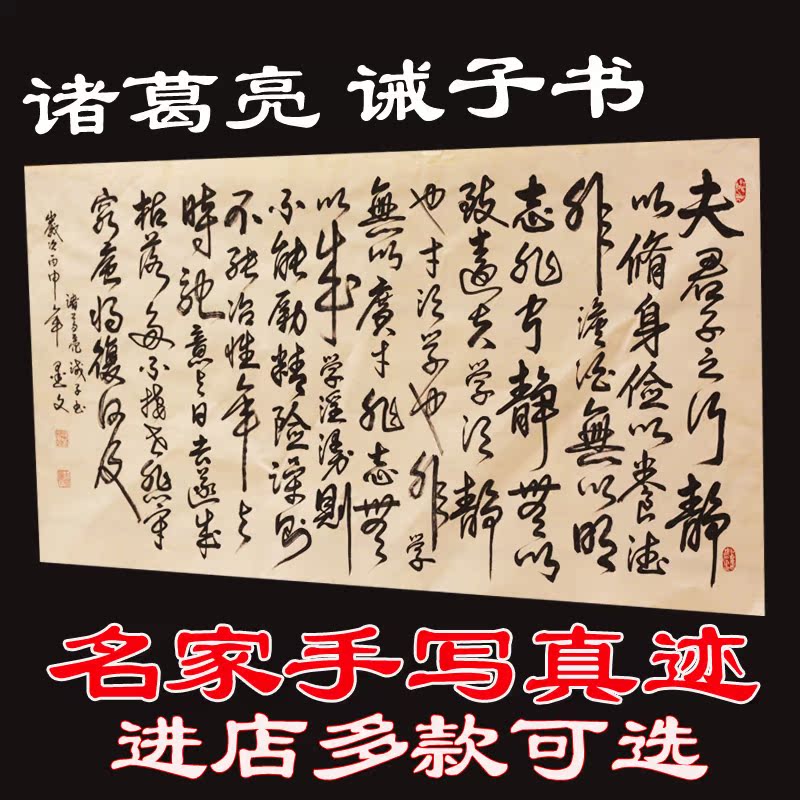 诸葛亮 诫子书
夫君子之行静
以脩身俭以養德
非澹泊無以明
志非宁静無以
致遠夫学须静
也才须学也非学
無以廣才非志無
以成学淫漫則
不能励精险躁则
不能冶性年与
時馳意与日去遂成
枯落多不接世悲守
穷庐将復何及
诸葛亮诫子书
歲次丙申年墨文
名家手写真迹
进店多款可选